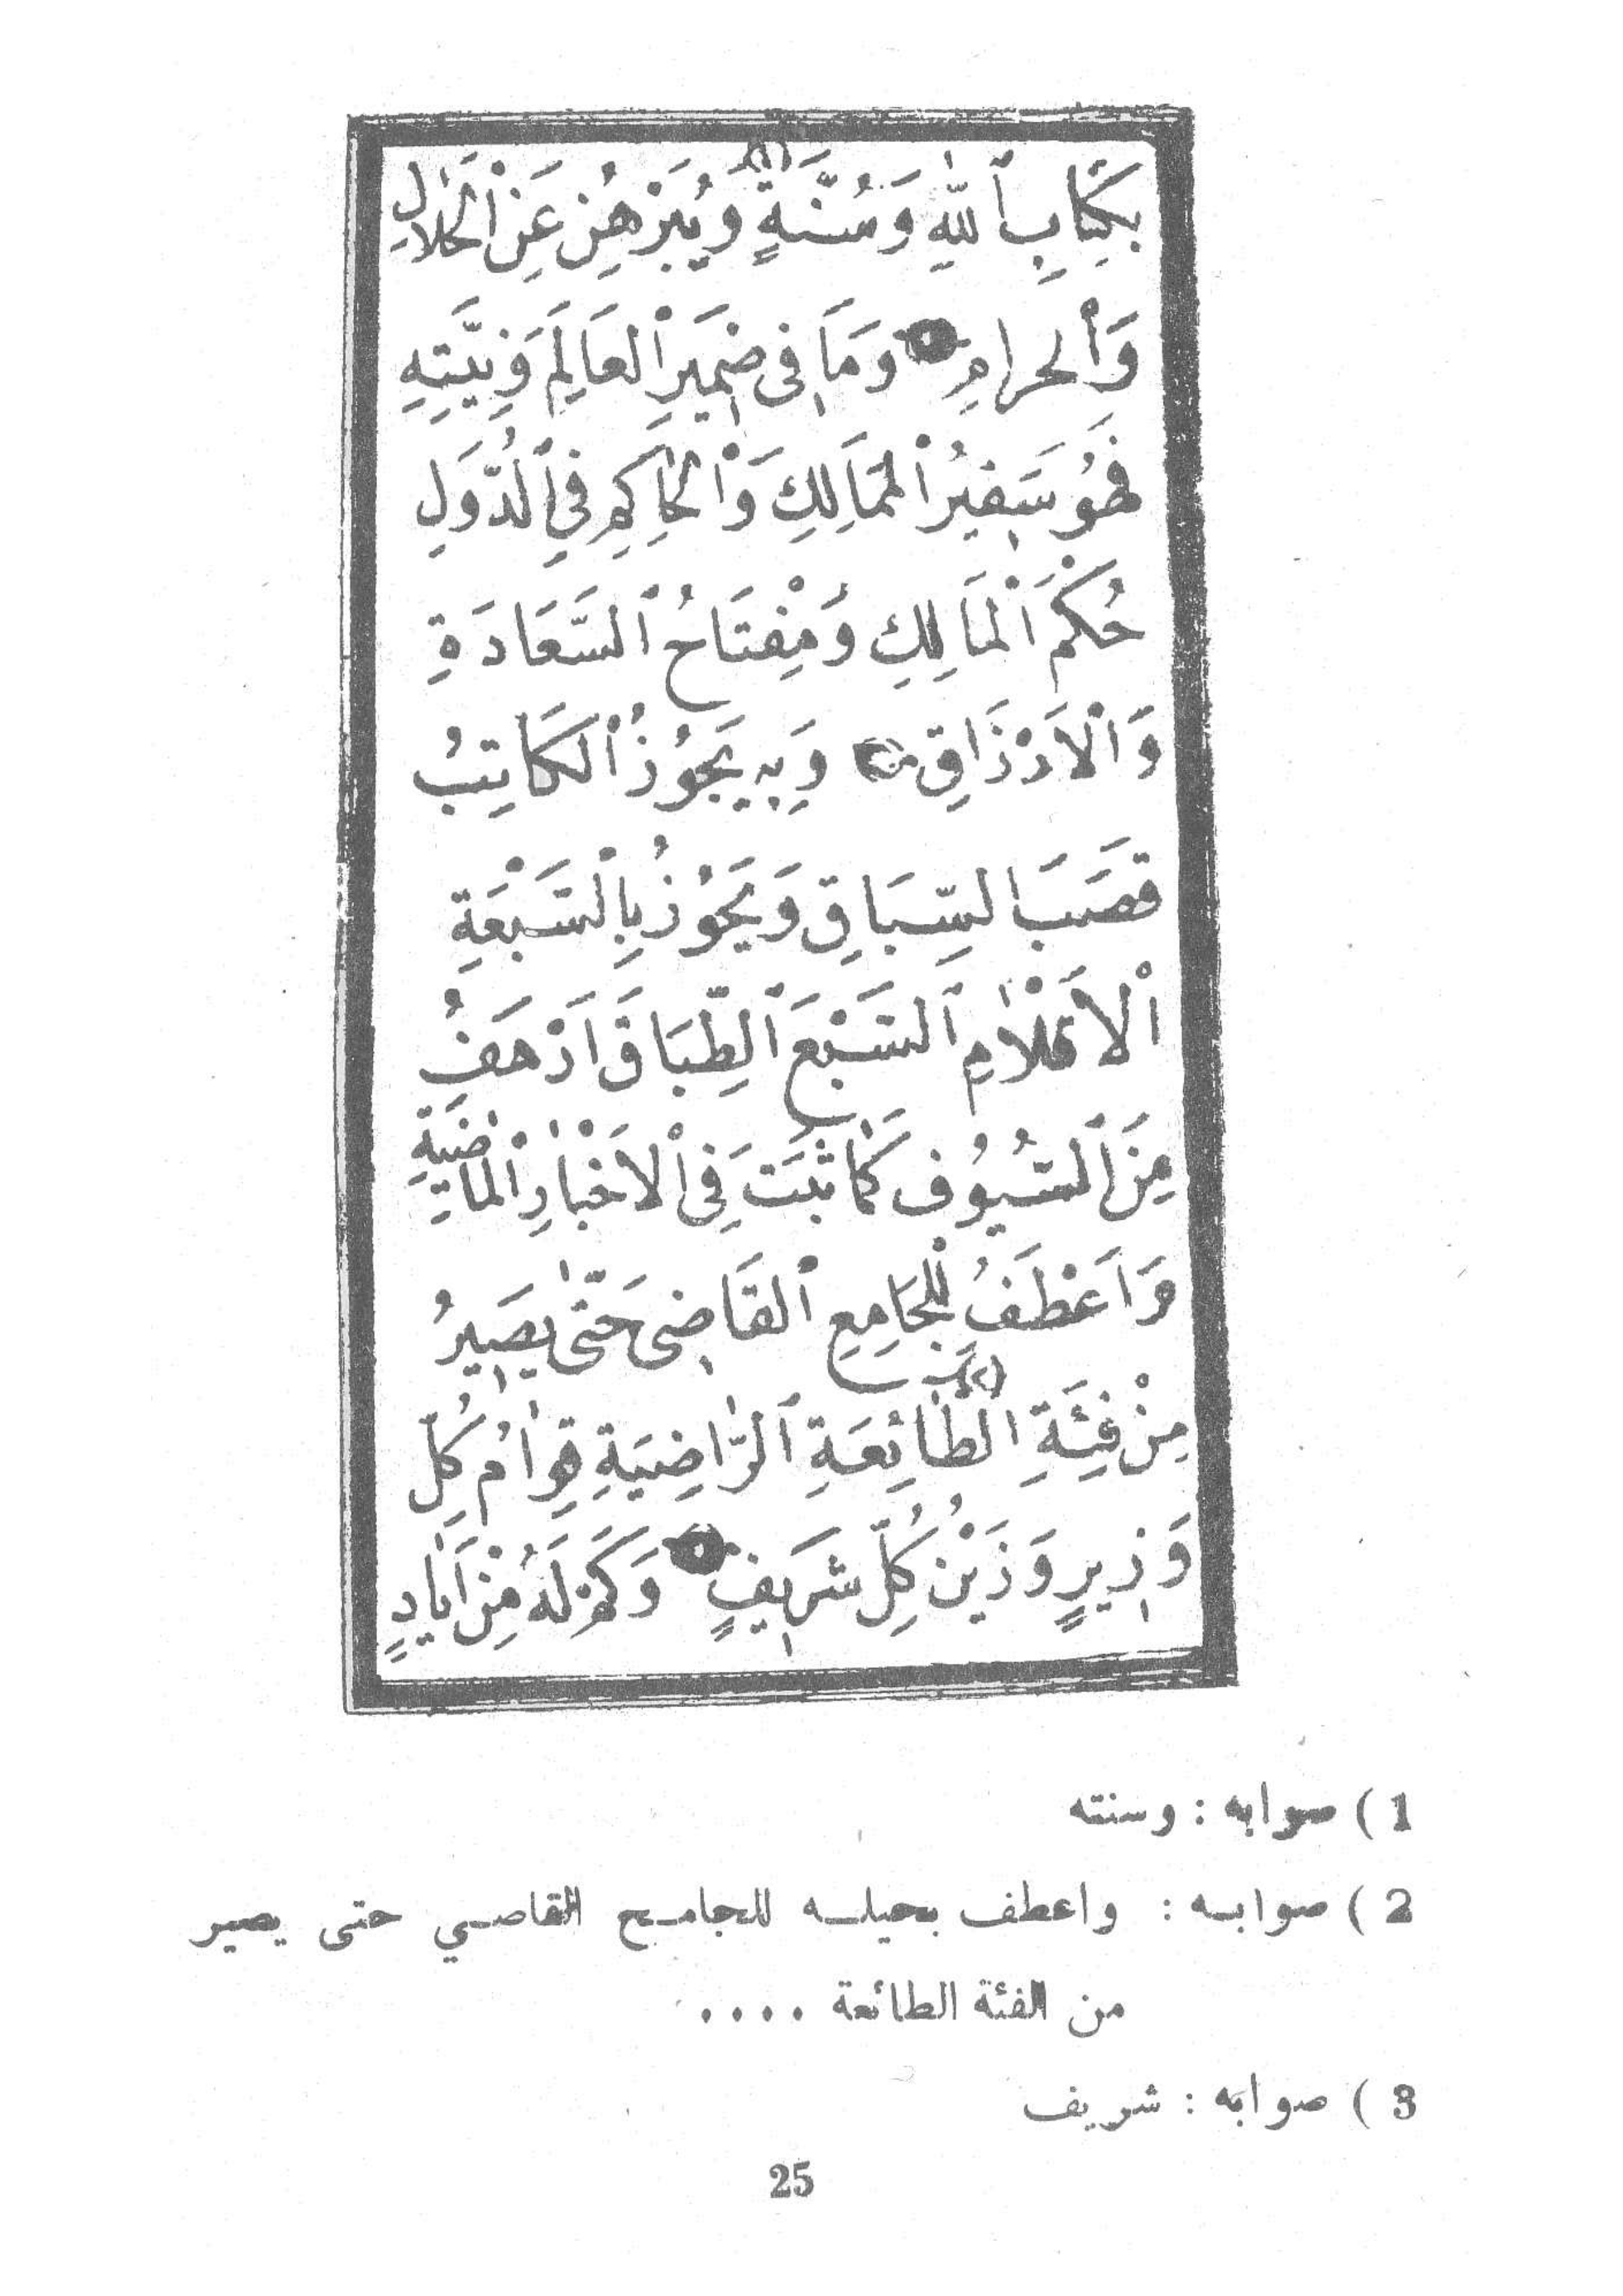 بِكِتَابِ ٱللّٰهِ وَسُنَّةٍ (١) وَيُبَرْهِنُ عَنْ ٱلْحَلَالِ
وَٱلْحرامِ وَمَا فِى ضمِيَرِ ٱلعَالِمِ وَنِيَّتِهِ
فَهُوَ سَفِيرُ ٱلْمَمَالِكِ وَٱلْحَاكِمِ فِي ٱلدُّوَلِ
حُكْمَ ٱلْمَالِكِ وَمِفْتَاحُ ٱلسَّعَادَةِ
وَٱلْاَرْزَاقِ وَبِهِ يَجُوزُ ٱلكَاتِبُ
قصَبَ السِّبَاقِ وَيَحُوزُ بِٱلسَّبْعَةِ
ٱلْاَقْلَامِ ٱلسَّبْعَ ٱلطِّبَاقَ اَرْهَفُ
مِنَ ٱلسُّيُوفِ كَمَا ثَبَتَ فِى ٱلْاَخْبَارِ ٱلْمَاضِيَةِ
وَاَعْطَفُ لِلْجَامِعِ ٱلقَاضِى حَتّٰى يَصِيرُ
مِنْ فِئَةِ ٱلطَّائِعَةِ (٢) ٱلرَّاضِيَةِ قِوَامُ كُلِّ
وَزِيرٍ وَزَيْنُ كُلِّ شَرَيفٍ وَكَمْ لَهُ مِنْ اَيَادٍ
1 ) صوابه : وسنته
2 ) صوابـه : واعطف بحيلـه للجامـح القاصـي حتى يصير
من الفئة الطائعة ....
3 ) صوابه : شريف
25